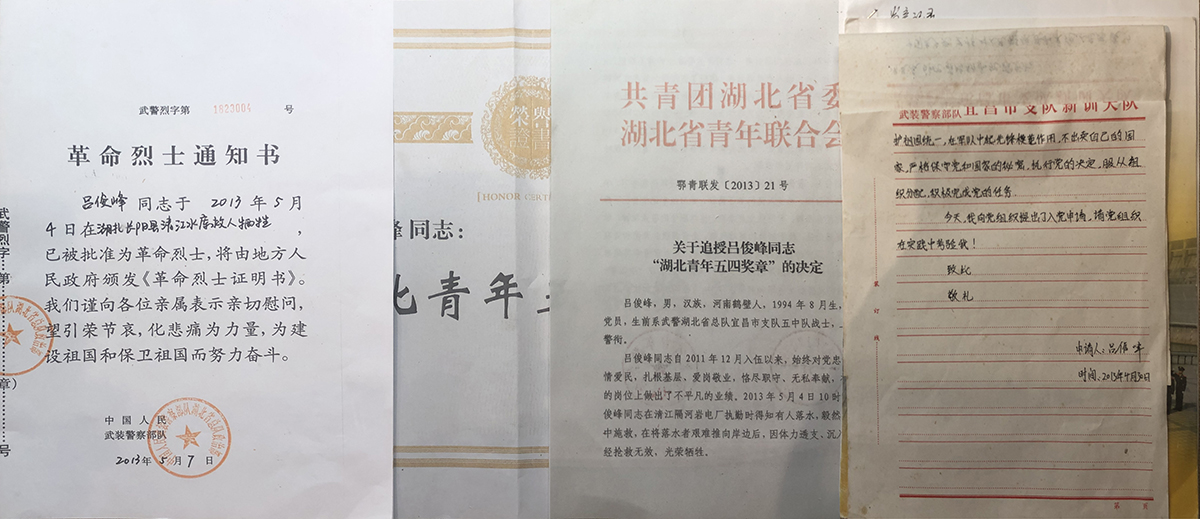 武警烈字第 1823004 号
革命烈士通知书
吕俊峰 同志于 2013 年 5 月
4 日在湖北长阳县清江水库救人牺牲,
已被批准为革命烈士,将由地方人
民政府颁发《革命烈士证明书》。
我们谨向各位亲属表示亲切慰问,
望引荣节哀,化悲痛为力量,为建
设祖国和保卫祖国而努力奋斗。
中国人民
武装警察部队
2013 年 5 月 7 日
武警烈字 第
章)
号
榮譽
證書
HONOR CERT
峰同志:
北青年五
共青团湖北省委
湖北省青年联合会
鄂青联发〔2013〕21 号
关于追授吕俊峰同志
“湖北青年五四奖章”的决定
吕俊峰,男,汉族,河南鹤壁人,1994 年 8 月生,
党员,生前系武警湖北省总队宜昌市支队五中队战士,
警衔。
吕俊峰同志自 2011 年 12 月入伍以来,始终对党忠
情爱民,扎根基层、爱岗敬业,恪尽职守、无私奉献,
的岗位上做出了不平凡的业绩。2013 年 5 月 4 日 10 时
俊峰同志在清江隔河岩电厂执勤时得知有人落水,毅然
中施救,在将落水者艰难推向岸边后,因体力透支、沉入
经抢救无效,光荣牺牲。
武装警察部队 宜昌市支队新训大队
护祖国统一,在军队中起先锋模范作用,不出卖自己的国
家,严格保守党和国家的秘密,执行党的决定,服从组
织分配,积极完成党的任务.
今天,我向党组织提出了入党申请,请党组织
在实践中考验我!
致此
敬礼
申请人:吕俊峰
时间:2013年4月30日
装
订
线
第 页